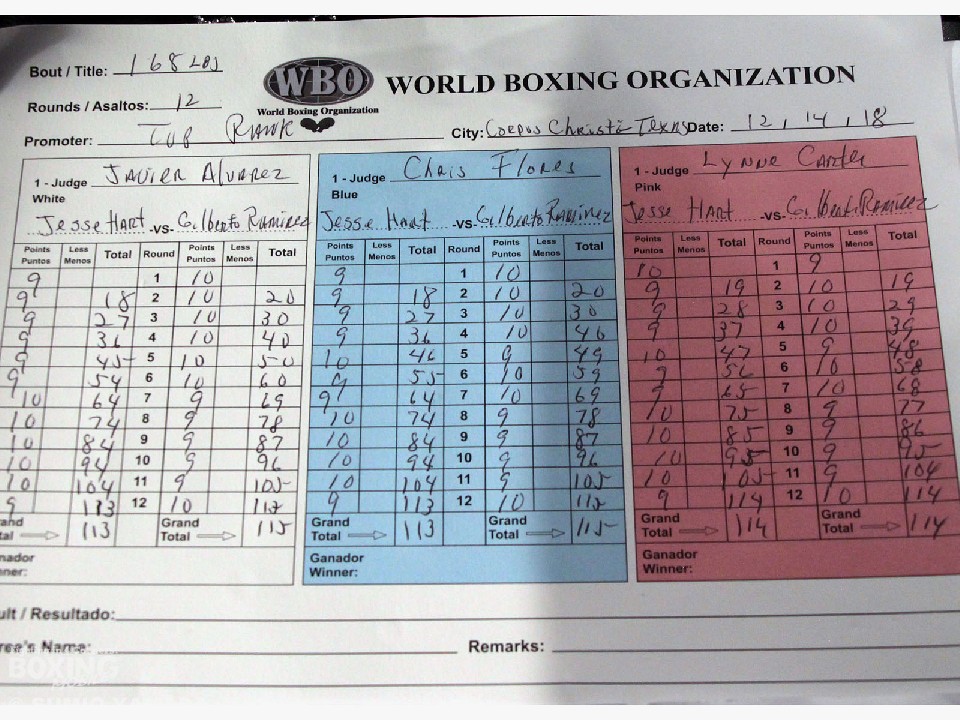 Bout / Title: 168 LBS
WBO
World Boxing Organization
WORLD BOXING ORGANIZATION
Rounds / Asaltos: 12
Promoter: TOP RANK City: Corpus Christi Texas Date: 12, 14, 18
1 - Judge Javier Alvarez
White
Jesse Hart -vs- Gilberto Ramirez
Points Puntos Less Menos Total Round Points Puntos Less Menos Total
9 1 10
9 18 2 10 20
9 27 3 10 30
9 36 4 10 40
9 45 5 10 50
9 54 6 10 60
10 64 7 9 69
10 74 8 9 78
10 84 9 9 87
10 94 10 9 96
10 104 11 9 105
9 113 12 10 115
Grand Total 113 Grand Total 115
Ganador
Winner:
1 - Judge Chris Flores
Blue
Jesse Hart -vs- Gilberto Ramirez
Points Puntos Less Menos Total Round Points Puntos Less Menos Total
9 1 10
9 18 2 10 20
9 27 3 10 30
9 36 4 10 40
10 46 5 9 49
9 55 6 10 59
9 64 7 10 69
10 74 8 9 78
10 84 9 9 87
10 94 10 9 96
10 104 11 9 105
9 113 12 10 115
Grand Total 113 Grand Total 115
Ganador
Winner:
1 - Judge Lynne Carter
Pink
Jesse Hart -vs- Gilberto Ramirez
Points Puntos Less Menos Total Round Points Puntos Less Menos Total
10 1 9
9 19 2 10 19
9 28 3 10 29
9 37 4 10 39
10 47 5 9 48
9 56 6 10 58
9 65 7 10 68
10 75 8 9 77
10 85 9 9 86
10 95 10 9 95
10 105 11 9 104
9 114 12 10 114
Grand Total 114 Grand Total 114
Ganador
Winner:
ult / Resultado:
rea's Name: Remarks:
BOXING